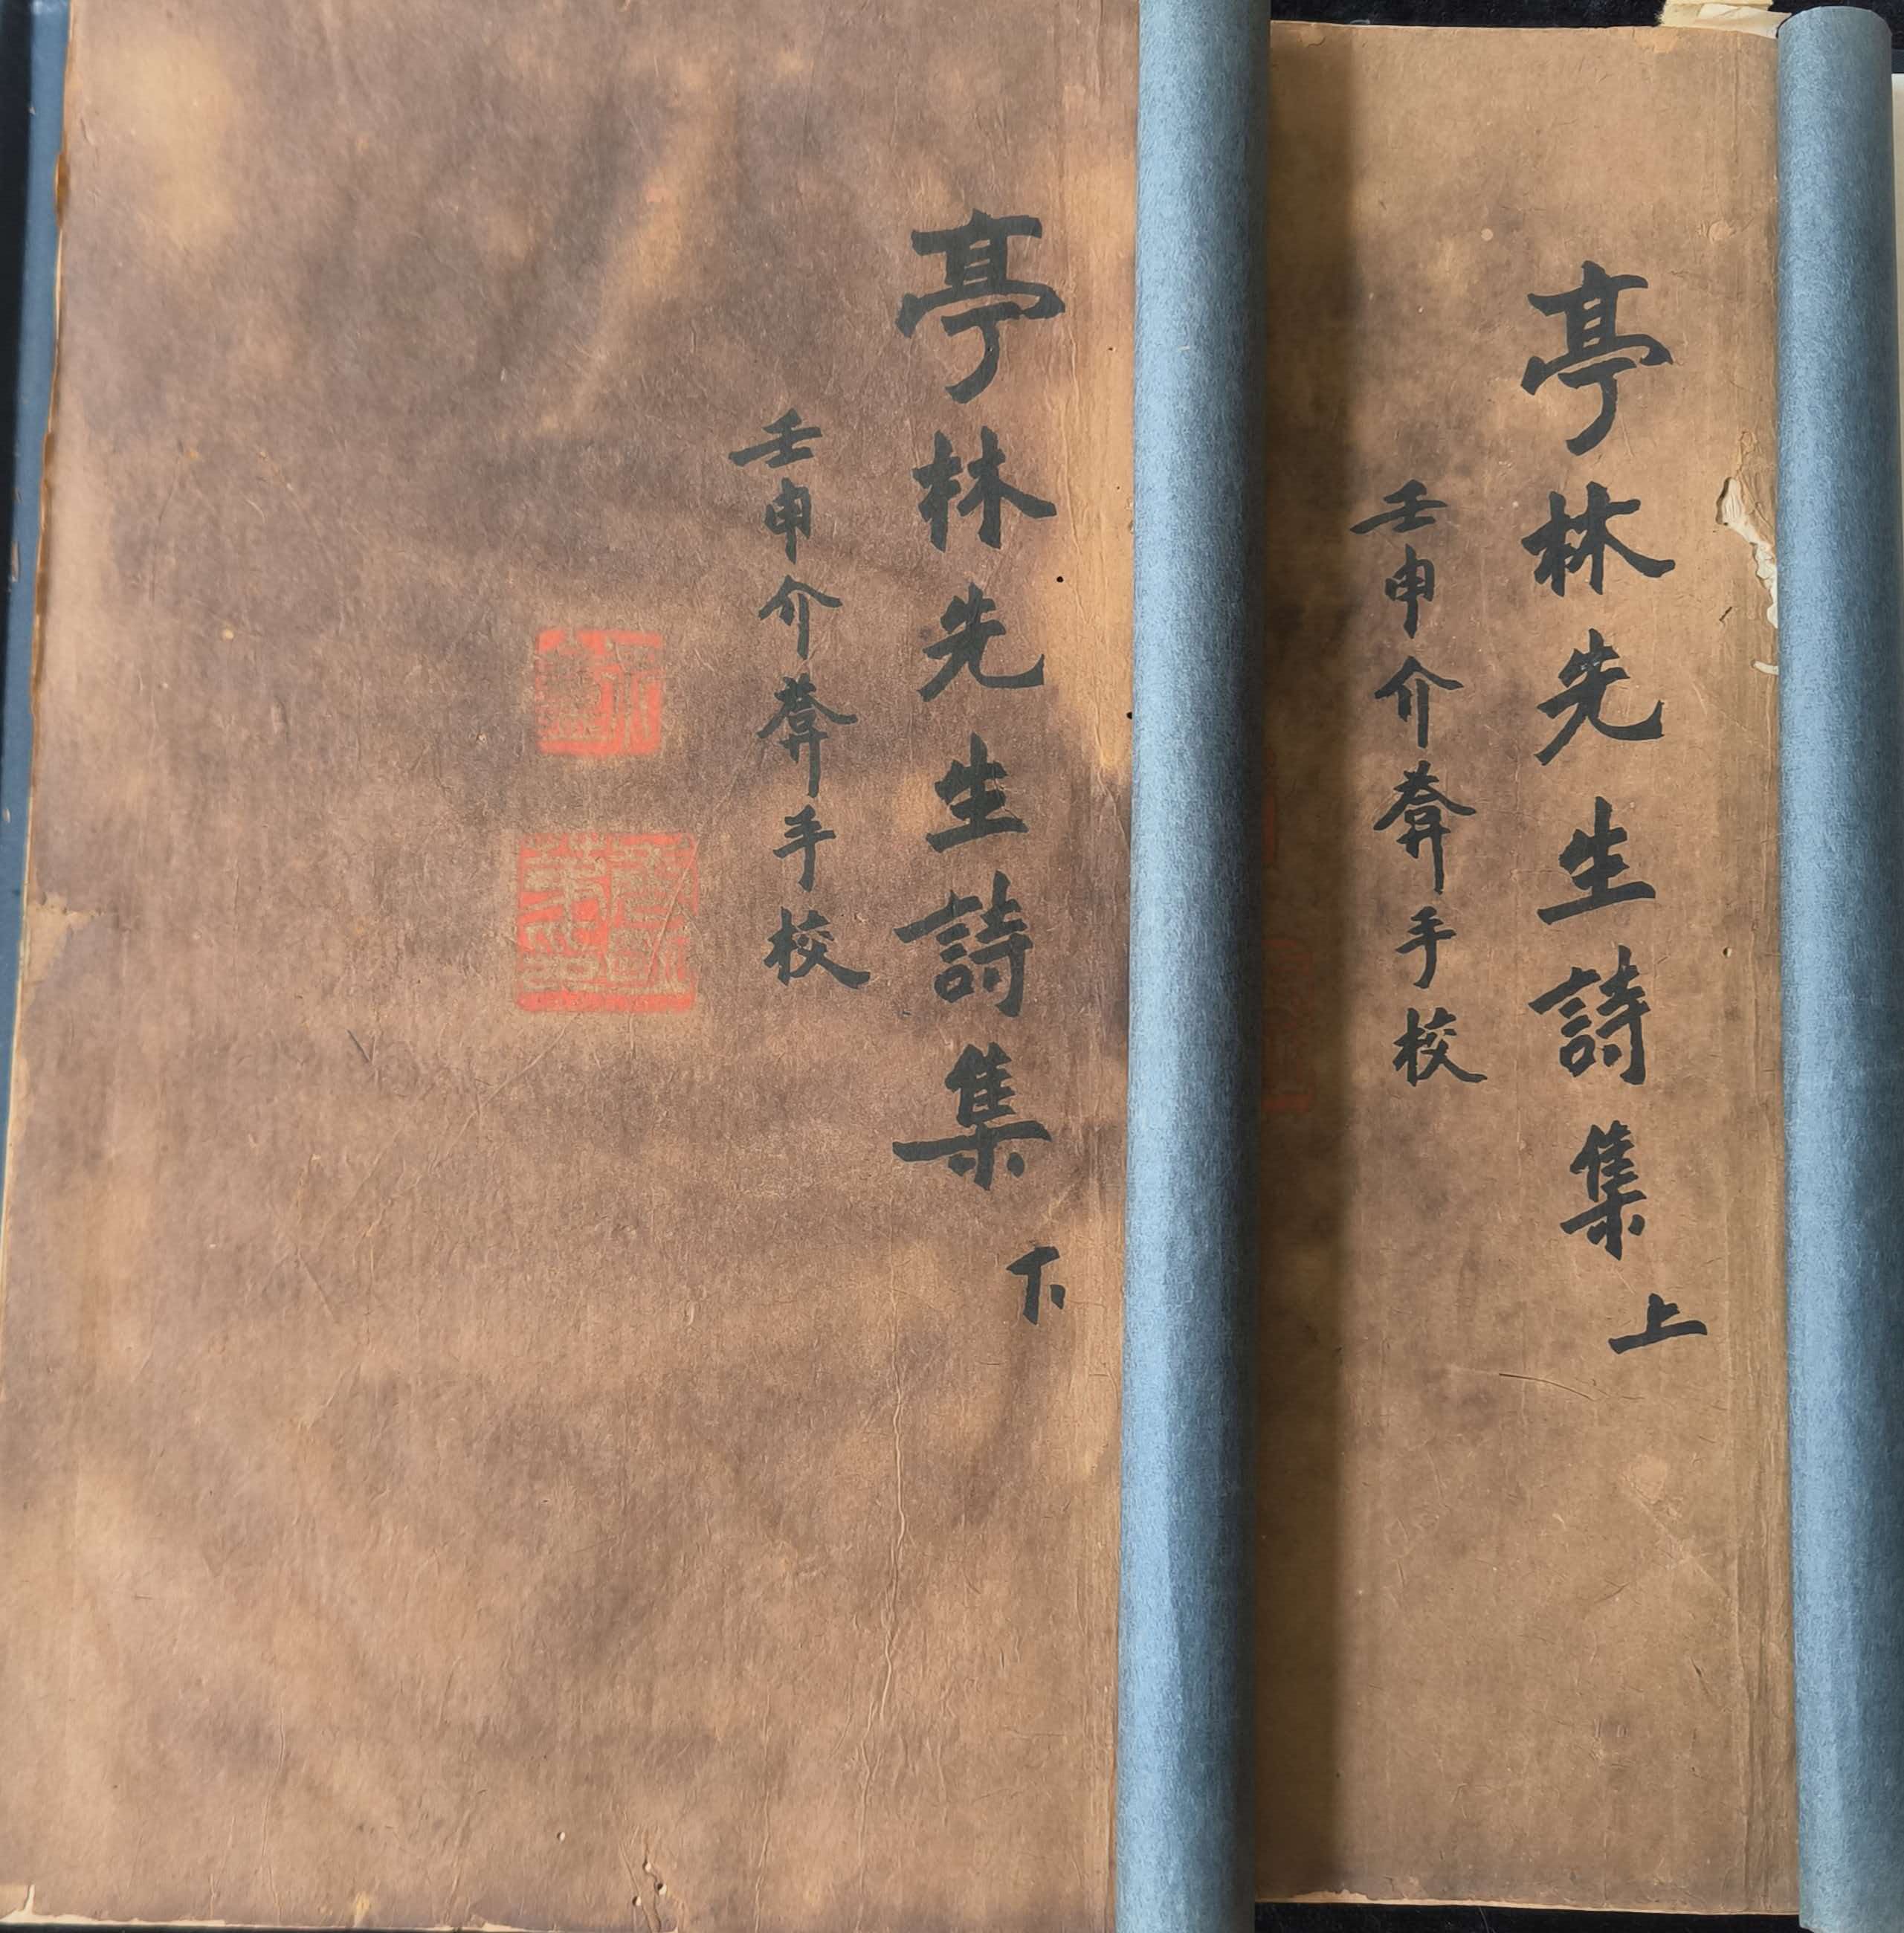 亭林先生詩集上
壬申介葊手校
亭林先生詩集下
壬申介葊手校